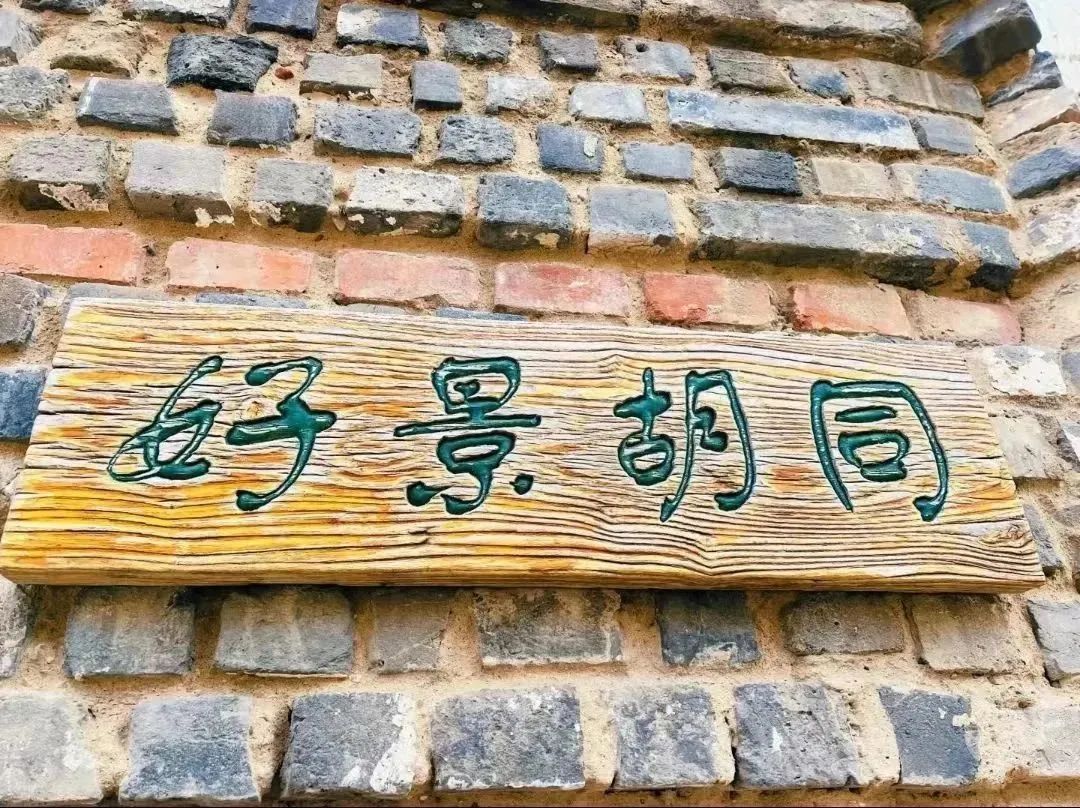 好景胡同